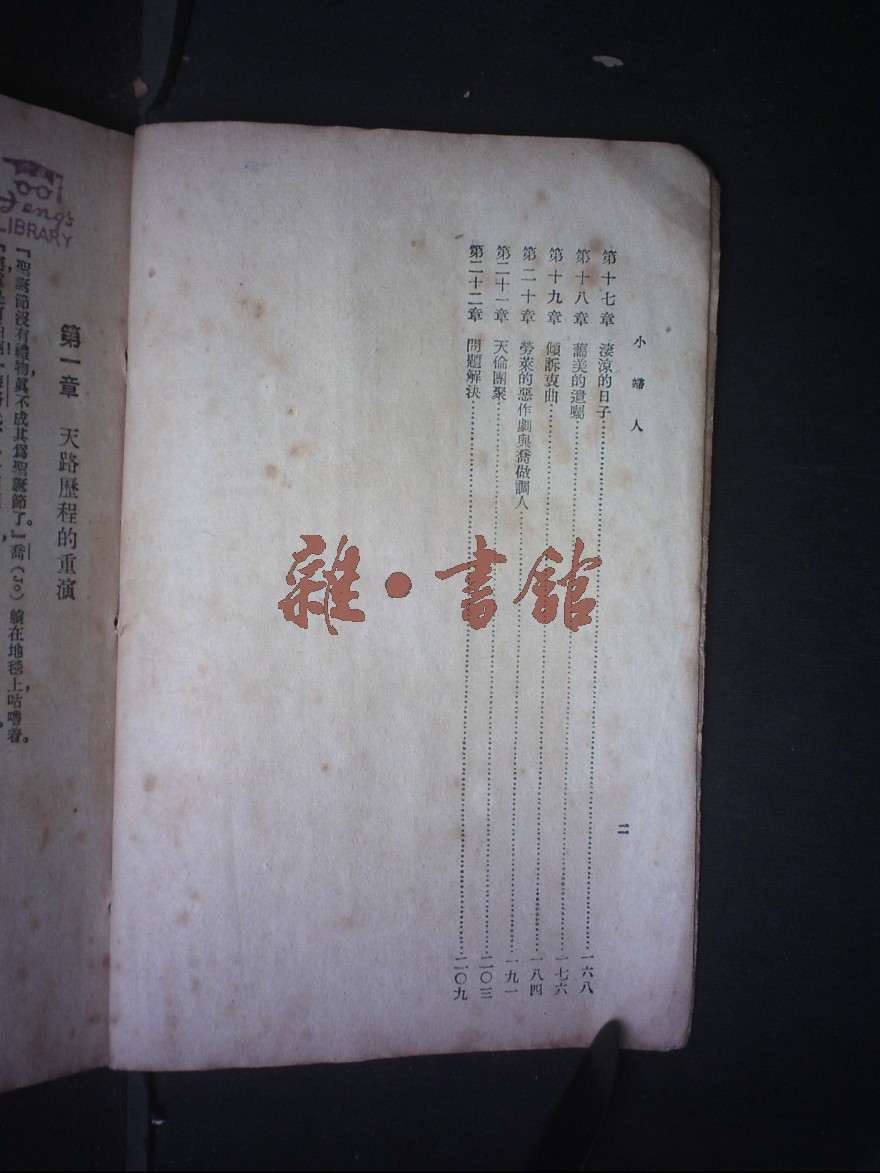 小婦人
二
第十七章 淒涼的日子……一六八
第十八章 藹美的遺囑……一七六
第十九章 傾訴衷曲……一八四
第二十章 勞萊的惡作劇與喬做調人……一九一
第二十一章 天倫團聚……二〇三
第二十二章 問題解決……二〇九
雜·書館
Feng's
LIBRARY
第一章 天路歷程的重演
『聖誕節沒有禮物，眞不成其爲聖誕節了。』喬（Jo）躺在地毯上，咕嚕着。